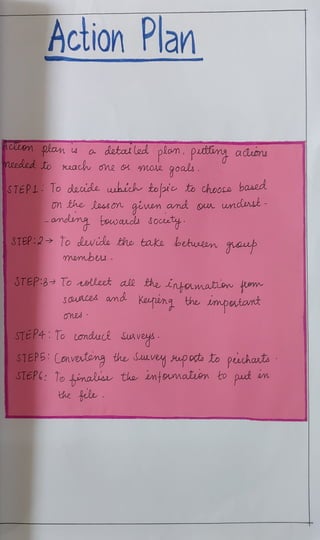 Action Plan
Action plan is a detailed plan, putting actions
needed to reach one or more goals.
STEP1: To decide which topic to choose based
on the lesson given and our underst-
-anding towards society.
STEP:2→ To devide the take between group
members.
STEP:3→ To collect all the information from
sources and keeping the important
ones.
STEP4: To conduct surveys.
STEP5: Converting the survey reports to piecharts.
STEP6: To finalise the information to put in
the file.